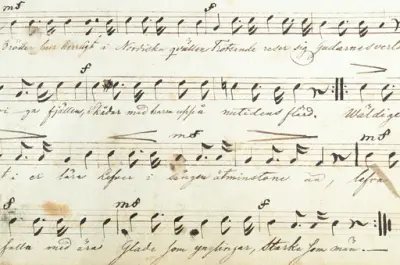 mf f
Bröder herrligt i Nordiska qvällen Trotsande reser sig Gudarnes verl
f
i ga fjällen, Skådar med harm uppå nutidens flärd. Wäldige
mf mf
t i er lära lefver i sången åtminstone än, lefva
mf f
falla med ära Glade som ynglingar, Starke som män.